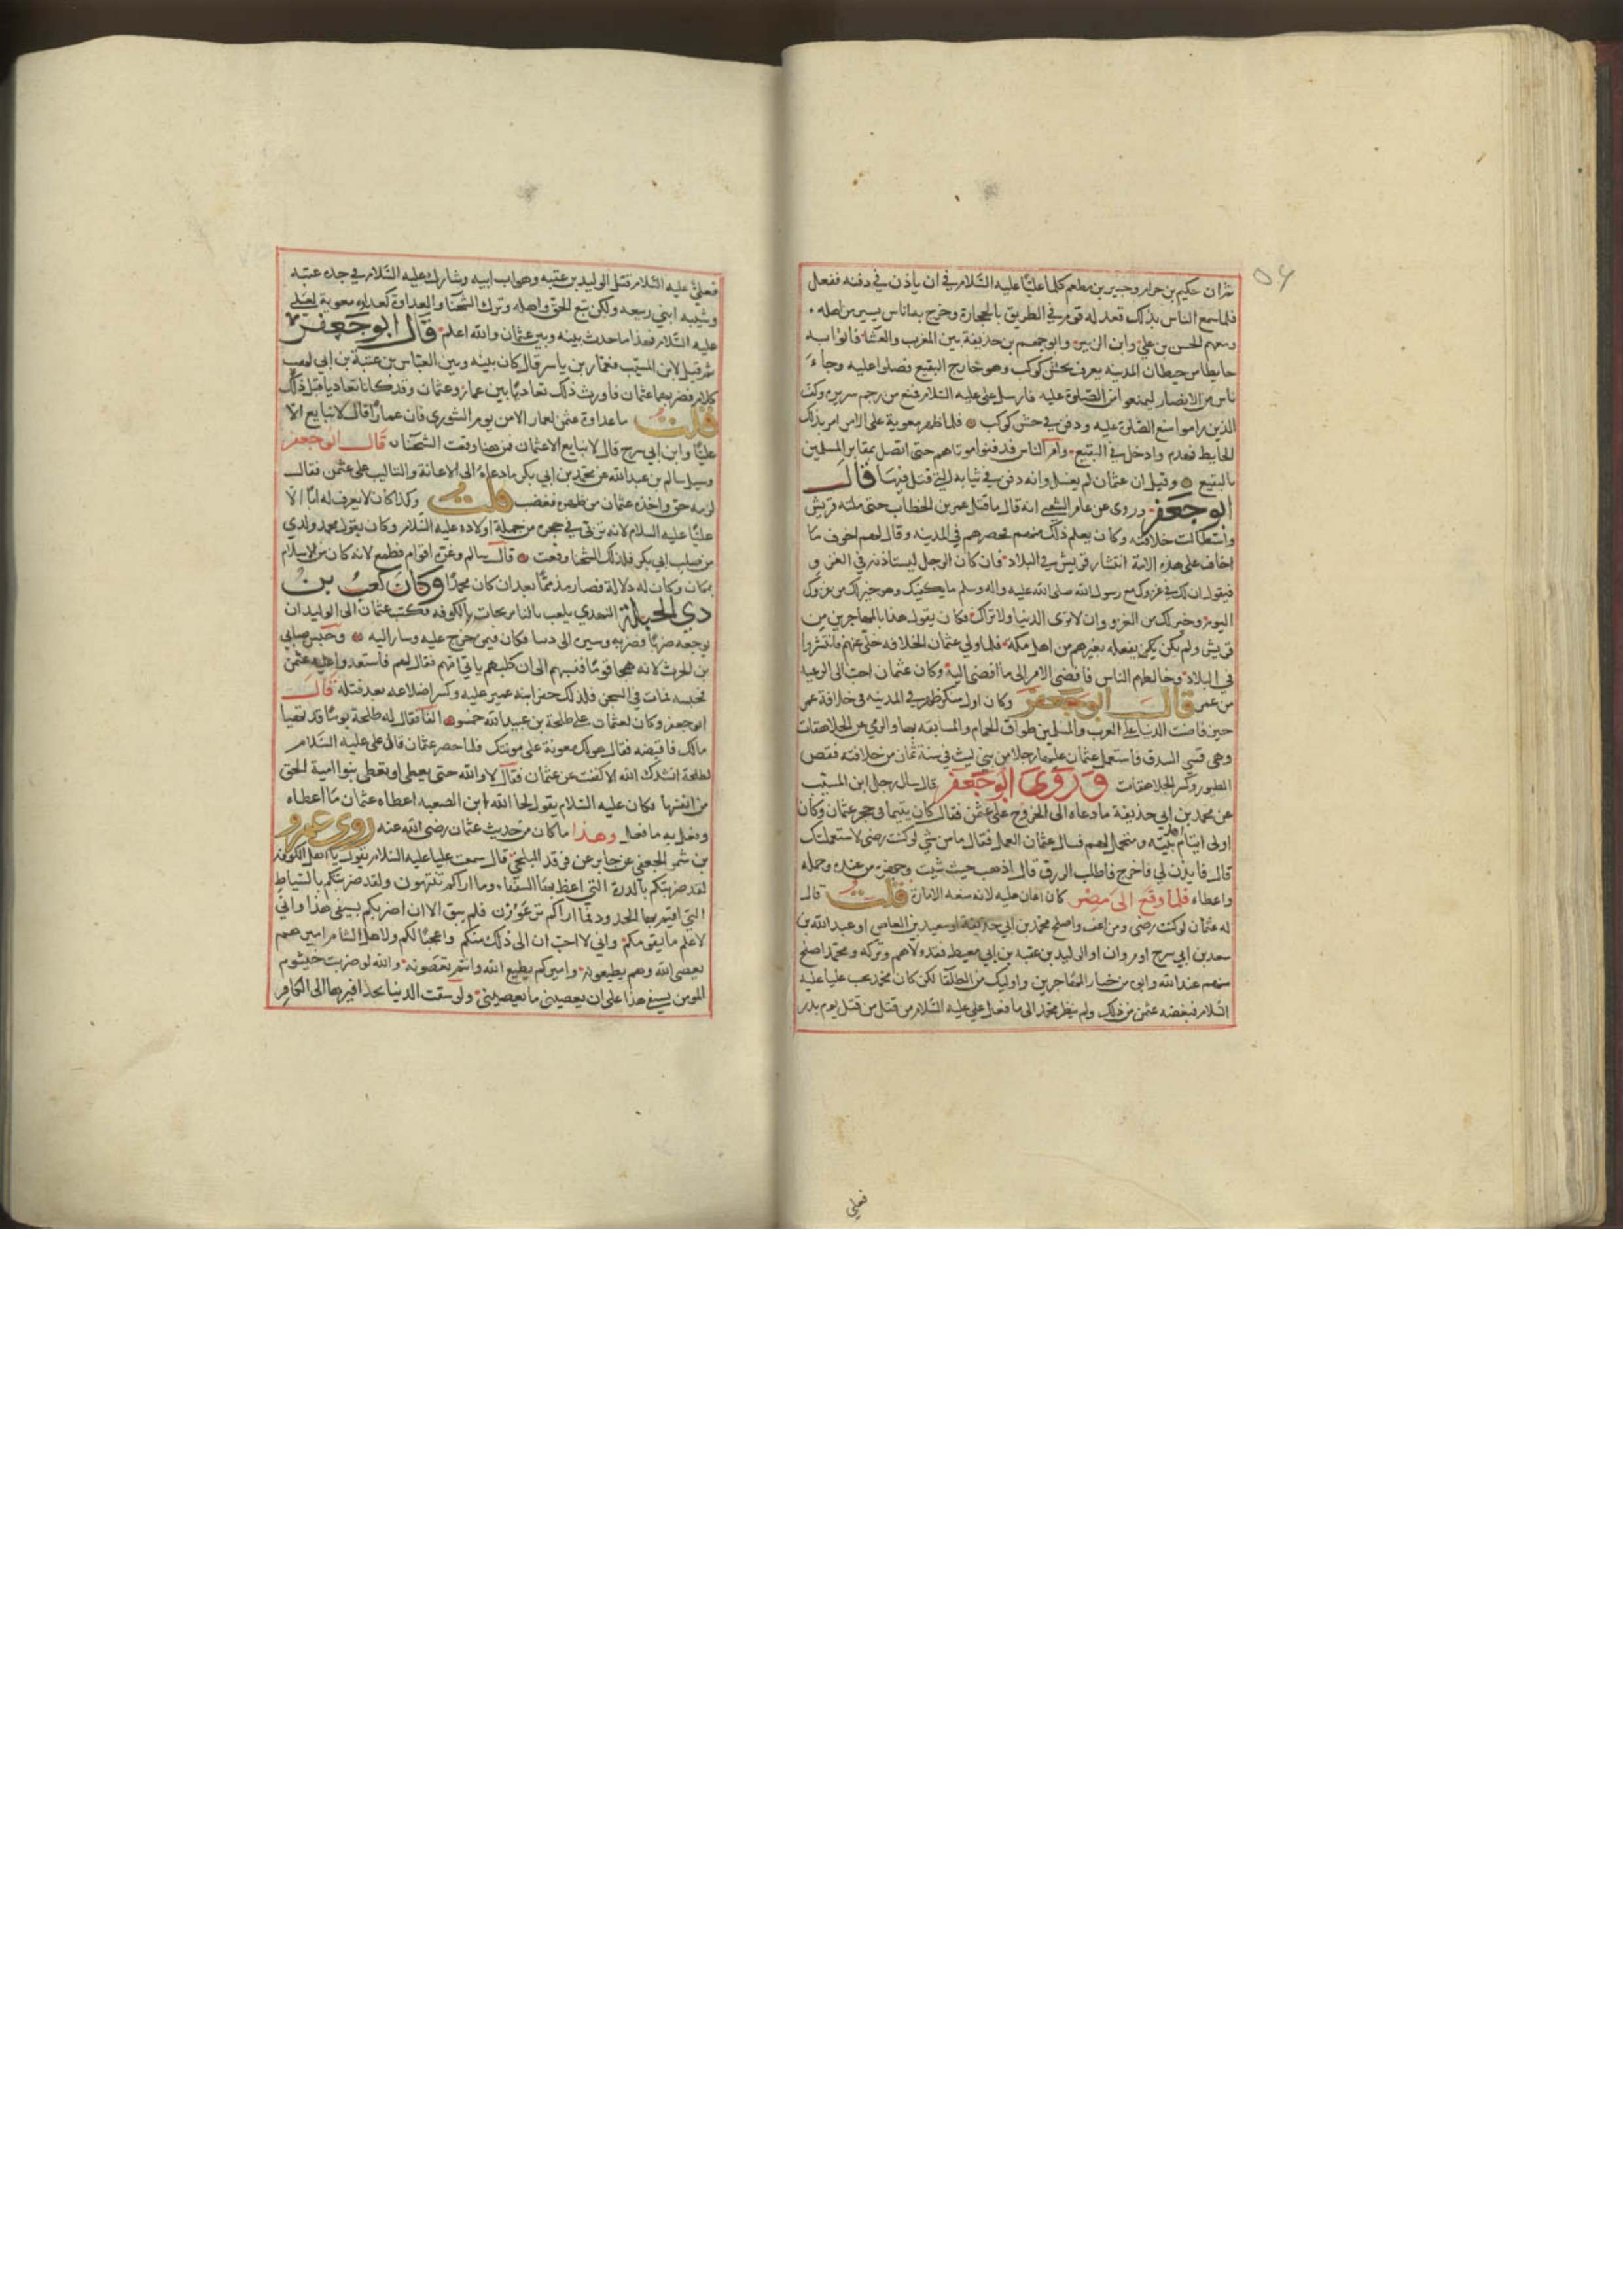 ثم ان حكيم بن حزام وجبير بن مطعم كلما عليًّا عليه السّلام في ان ياذن في دفنه ففعل
فلما سمع الناس بذلك قعد له قوم في الطريق بالحجارة وخرج به اناس يسير من اهله
ومعهم الحسن بن علي وابن الزبير وابو جهم بن حذيفة بين المغرب والعشا فاتوا به
حايطا من حيطان المدينه يعرف بحش كوكب وهو خارج البقيع فصلوا عليه وجاء
ناس من الانصار ليمنعوا من الصّلوة عليه فارسل علي عليه السلام فمنع من رجم سريره وكف
الذين راموا منع الصّلوة عليه ودفن في حش كوكب فلما ظهر معوية على الامر امر بذلك
الحايط فهدم وادخل في البقيع وامر الناس فدفنوا موتاهم حتى اتصل بمقابر المسلمين
بالبقيع وقيل ان عثمان لم يغسل وانه دفن في ثيابه التي قتل فيها قال
ابو جعفر وروى عن عامر الشعبي انه قال ما قتل عمر بن الخطاب حتى ملته قريش
واستطالت خلافته وكان يعلم ذلك منهم فحصرهم في المدينه وقال لهم اخوف ما
اخاف على هذه الامة انتشار قريش في البلاد فان كان الرجل ليستاذنه في الغزو
فيقول ان لك في غزوك مع رسول الله صلى الله عليه واله وسلم ما يكفيك وهو خير لك من غزوك
اليوم وخير لك من الغزو وان لا ترى الدنيا ولا تراك فكان يقول هذا بالمهاجرين من
قريش ولم يكن يفعله بغيرهم من اهل مكة فلما ولي عثمان الخلافه خلى عنهم فانتشروا
في البلاد وخالطهم الناس فافضى الامر الى ما افضى اليه وكان عثمان احب الى الرعيه
من عمر قال ابو جعفر وكان اول منكر ظهر في المدينه في خلافة عمر
حين فاضت الدنيا على العرب والمسلمين طواف الحمام والمسابقه بها والرمي عن الجلاهقات
وهي قسي البندق فاستعمل عثمان عليهما رجلا من بني ليث في سنة ثمان من خلافته فقص
الطيور وكسر الجلاهقات وروى ابو جعفر قال سال رجل ابن المسيب
عن محمد بن ابي حذيفة ما دعاه الى الخروج على عثمن فقال كان يتيما في حجر عثمان وكان
اولى ايتام اهل بيته ومتحمل لهم فسال عثمان العمل فقال ما بنيّ لو كنت رضي لاستعملتك
قال فايذن لي فاخرج فاطلب الرزق قال اذهب حيث شيت وجهزه من عنده وحمله
واعطاه فلما وقع الى مصر كان اعان عليه لانه منعه الامارة قلت قال
له عثمان لو كنت رضي ومن اعف واصلح محمد بن ابي حذيفة او سعيد بن العاص او عبد الله بن
سعد بن ابي سرح او مروان او الوليد بن عقبه بن ابي معيط فقد ولاهم وتركه ومحمد اصلح
منهم عند الله وابي من خيار المهاجرين واوليك من الطلقا لكن كان محمد يحب عليا عليه
السّلام فبغضه عثمن من ذلك ولم ينظر محمد الى ما فعل علي عليه السّلام من قتل من قتل يوم بدر
فعلي
فعلي عليه السّلام قتل الوليد بن عتبه وهو اب ابيه وشارك عليه السّلام في جده عتبه
وشيبه ابني ربيعه ولكن تبع الحق واهله وترك الشحنا والعداوة كعداوه معوية لعلي
عليه السّلام فهذا ما حدث بينه وبين عثمان والله اعلم قال ابو جعفر
ثم قيل لابن المسيب فعمار بن ياسر قال كان بينه وبين العباس بن عتبة بن ابي لهب
كلام فضربهما عثمان فاورث ذلك تعاديا بين عمار وعثمان وقد كانا تعاديا قبل ذلك
قلت ما عداوة عثمن لعمار الا من يوم الشورى فان عمارا قال لا نبايع الا
عليًّا وابن ابي سرح قال لا نبايع الا عثمان فمن هنا وقعت الشحنا قال ابو جعفر
وسيل سالم بن عبد الله عن محمد بن ابي بكر ما دعاه الى الاعانة والتاليب على عثمن فقال
لزمه حق واخذه عثمان من ظهره فغضب قلت وكذا كان لا يعرف له ابًا الا
عليّا عليه السلام لانه تربى في حجره من جملة اولاده عليه السّلام وكان يقول محمد ولدي
من صلب ابي بكر فلذلك الشحنا وقعت قال سالم وغرّه اقوام فطمع لانه كان من الاسلام
بمكان وكان له دلالة فصار مذممًا بعد ان كان محمدًا وكان كعب بن
ذي الحبلة النهدي يلعب بالنارنجات بالكوفه فكتب عثمان الى الوليد ان
يوجعه ضربًا فضربه وسيره الى دنبا فكان فيمن خرج عليه وسار اليه وحبس ضابي
بن الحرث لانه هجا قومًا فنسبهم الى ان كلبهم ياتي امهم فقال لهم فاستعدوا عليه عثمن
فحبسه فمات في السجن فلذلك حضر ابنه عمير عليه وكسر اضلاعه بعد قتله قال
ابو جعفر وكان لعثمان على طلحة بن عبيد الله خمسون الفًا فقال له طلحة يومًا قد تهيا
مالك فاقبضه فقال هو لك معونة على مونتك فلما حصر عثمان قال علي عليه السّلام
لطلحة انشدك الله الا كففت عن عثمان فقال لا والله حتى يعطي او يعطى بنوا امية الحق
من انفسها وكان عليه السّلام يقول لحا الله ابن الصعبه اعطاه عثمان ما اعطاه
وفعل به ما فعل وهذا ما كان من حديث عثمان رضي الله عنه روى عمرو
بن شمر الجعفي عن جابر عن فرقد البلخي قال سمعت عليا عليه السّلام يقول يا اهل الكوفه
لقد ضربتكم بالدرة التي اعظ بها السفها وما اراكم تنتهون ولقد ضربتكم بالسّياط
التي اقيم بها الحدود فما اراكم ترعوون فلم يبق الا ان اضربكم بسيفي هذا واني
لاعلم ما يقومكم واني لا احب ان الى ذلك منكم واعجبًا لكم ولاهل الشام اميرهم
يعصي الله وهم يطيعونه واميركم يطيع الله وانتم تعصونه والله لو ضربت خيشوم
المومن بسيفي هذا على ان يعصيني ما يعصيني ولو سقت الدنيا بحذافيرها الى الكافر